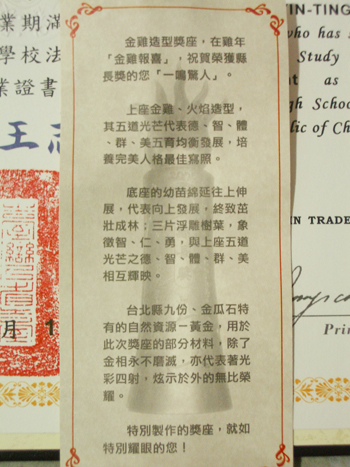 業期滿
學校法
業證書
王志
月 1
金雞造型獎座，在雞年
「金雞報喜」，祝賀榮獲縣
長獎的您「一鳴驚人」。
上座金雞、火焰造型，
其五道光芒代表德、智、體
、群、美五育均衡發展，培
養完美人格最佳寫照。
底座的幼苗綿延往上伸
展，代表向上發展，終致茁
壯成林；三片浮雕樹葉，象
徵智、仁、勇，與上座五道
光芒之德、智、體、群、美
相互輝映。
台北縣九份、金瓜石特
有的自然資源－黃金，用於
此次獎座的部分材料，除了
金相永不磨滅，亦代表著光
彩四射，炫示於外的無比榮
耀。
特別製作的獎座，就如
特別耀眼的您！
IN-TING
who has s
Study
as
gh Schoo
lic of Ch
IN TRADE
Prin